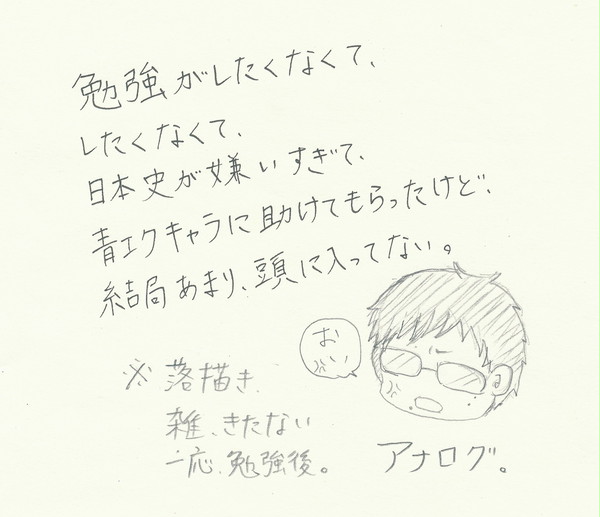 勉強がしたくなくて、
したくなくて、
日本史が嫌いすぎて、
青エクキャラに助けてもらったけど、
結局あまり、頭に入ってない。
おい
※落描き、
雑、きたない
一応、勉強後。
アナログ。